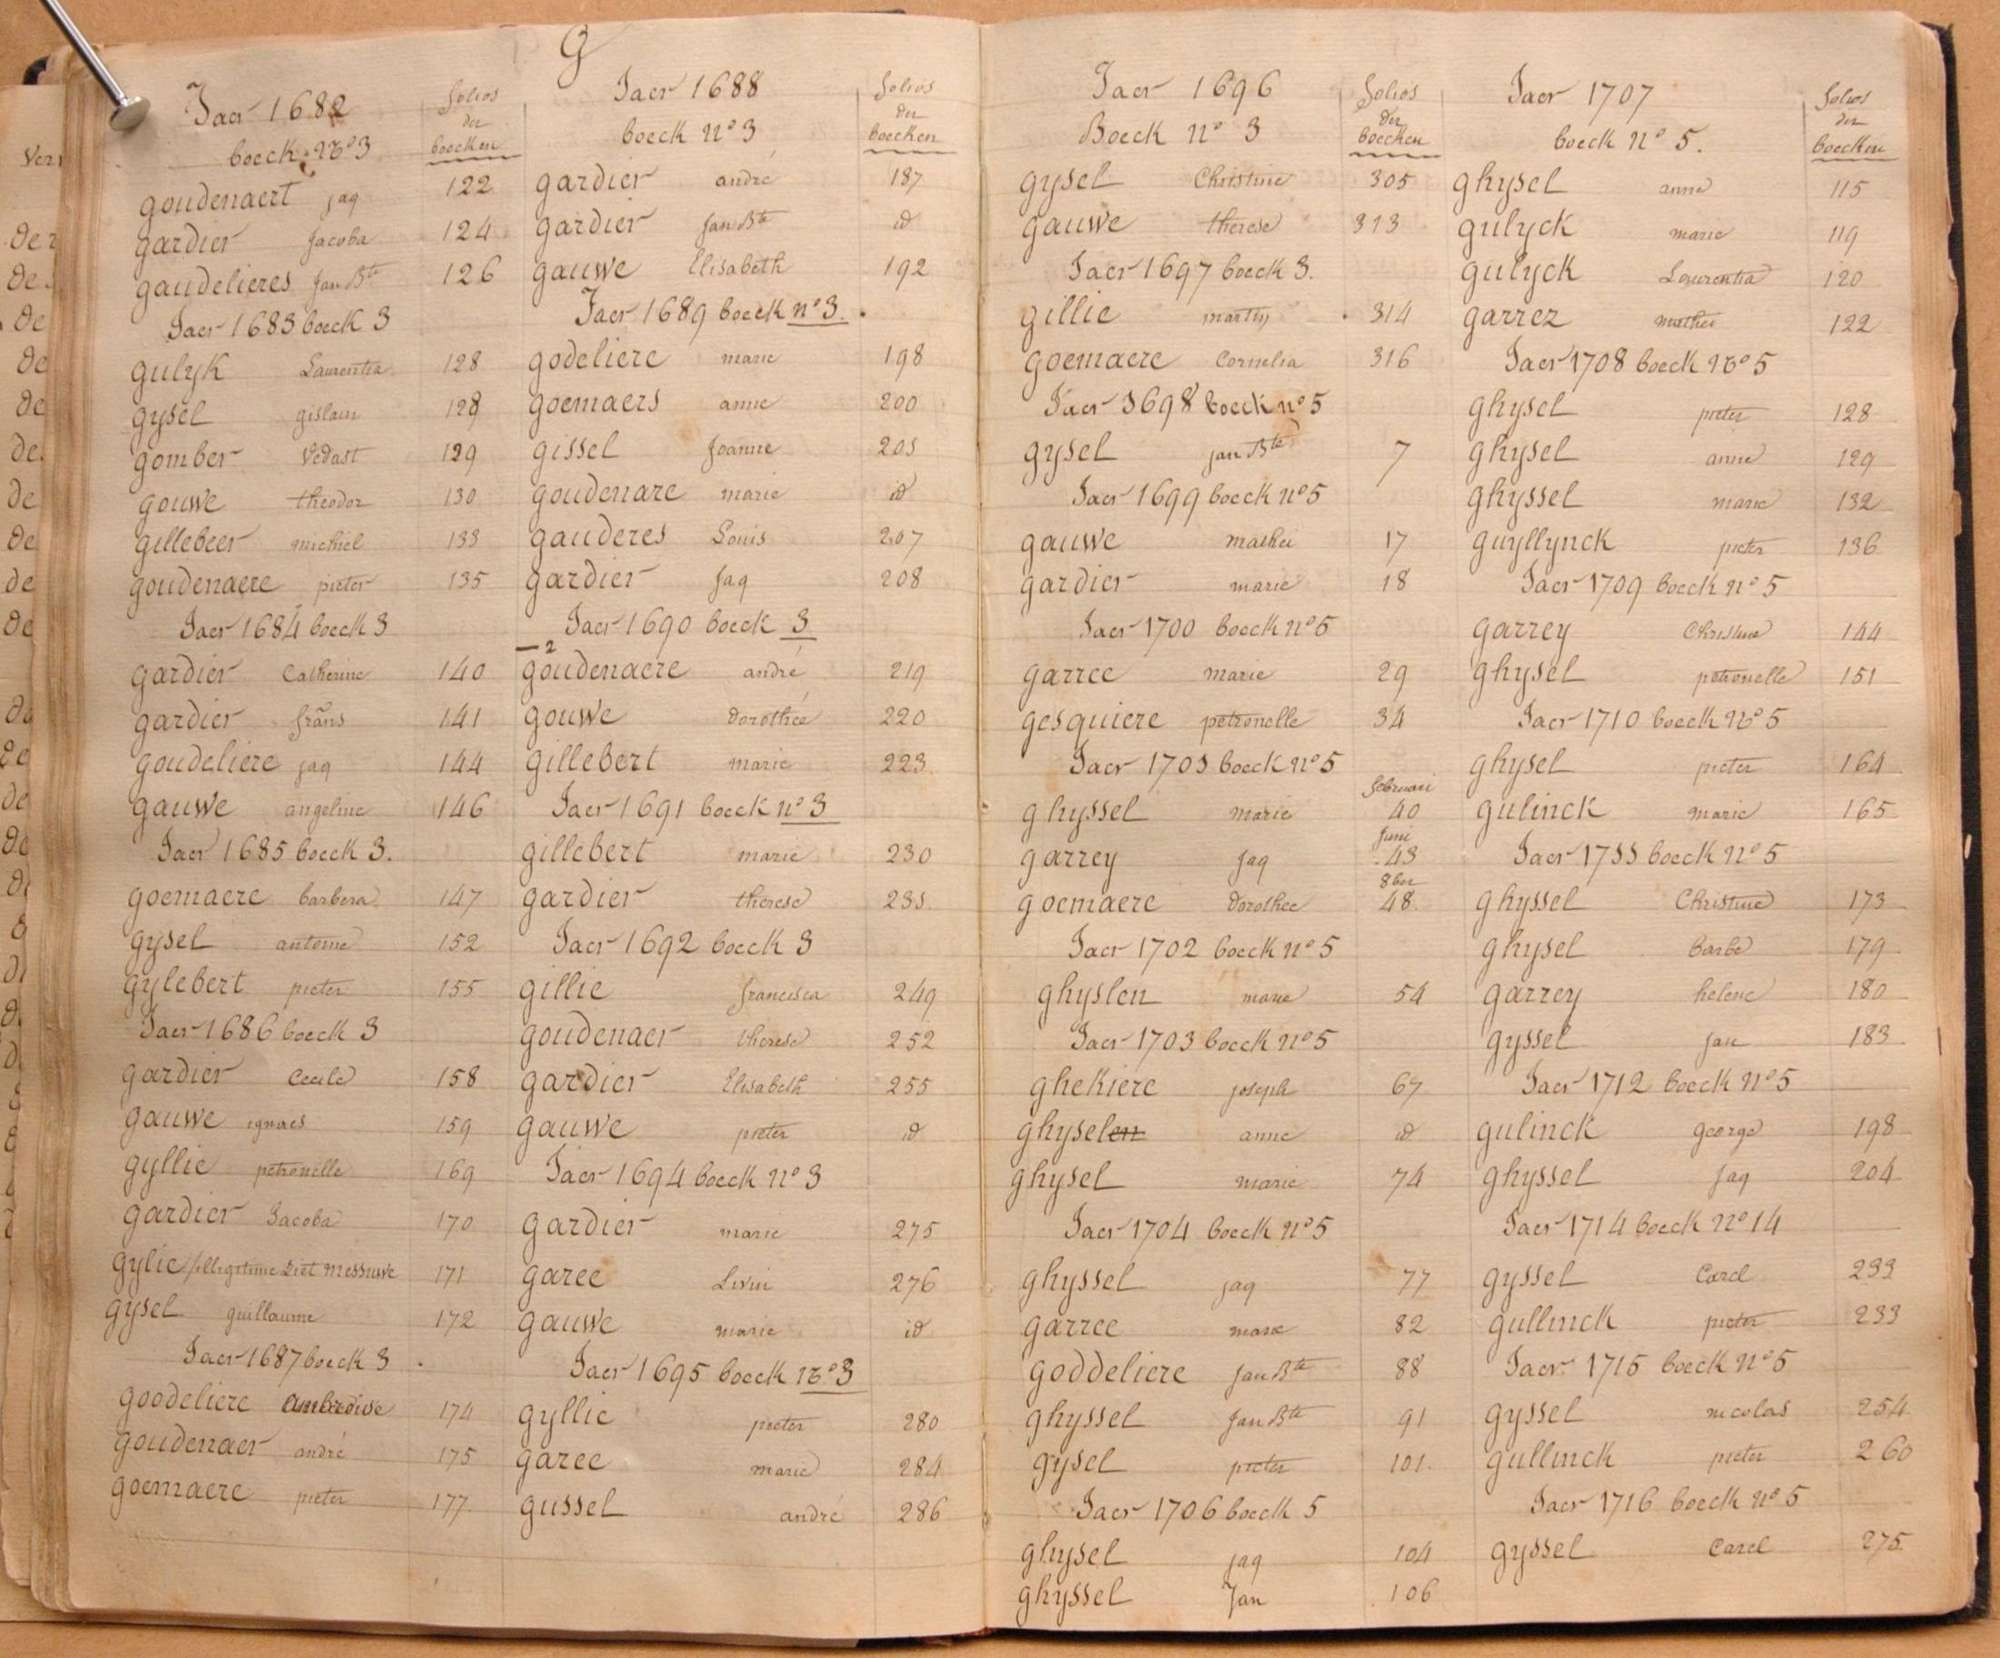 G
Jaer 1682
boeck No 3
Folios
der
boecken
goudenaert jaq 122
gardier Jacoba 124
gaudelieres Jan Bte 126
Jaer 1683 boeck 3
gulyk Laurentia 128
gysel gislain 128
gomber Vedast 129
gouwe theodor 130
gillebeer michiel 133
goudenaere pieter 135
Jaer 1684 boeck 3
gardier Catherine 140
gardier frans 141
goudeliere jaq 144
gauwe angeline 146
Jaer 1685 boeck 3.
goemaere barbera 147
gysel antoine 152
gylebert pieter 155
Jaer 1686 boeck 3
gardier Cecile 158
gauwe ignaes 159
gyllie petronelle 169
gardier Jacoba 170
gylie illigitime Liet Messuwe 171
gysel guillaume 172
Jaer 1687 boeck 3
goodeliere ambroise 174
goudenaer andré 175
goemaere pieter 177
Jaer 1688
boeck No 3
Folios
der
boecken
gardier andré 187
gardier Jan Bte id
gauwe Elisabeth 192
Jaer 1689 boeck no 3.
godeliere marie 198
goemaers anne 200
gissel Joanne 201
goudenare marie id
gauderes Louis 207
gardier Jaq 208
Jaer 1690 boeck 3
2
goudenaere andré 219
gouwe dorothée 220
gillebert marie 223
Jaer 1691 boeck no 3
gillebert marie 230
gardier therese 231
Jaer 1692 boeck 3
gillie francisca 249
goudenaer therese 252
gardier Elisabeth 255
gauwe pieter id
Jaer 1694 boeck no 3
gardier marie 275
garee Livin 276
gauwe marie id
Jaer 1695 boeck No 3
gyllie pieter 280
garee marie 284
gussel andré 286
Jaer 1696
Boeck No 3
Folios
der
boecken
gysel Christine 305
gauwe therese 313
Jaer 1697 boeck 3.
gillie martin 314
goemaere Cornelia 316
Jaer 1698 boeck no 5
gysel jan Bte 7
Jaer 1699 boeck no 5
gauwe mathei 17
gardier marie 18
Jaer 1700 boeck no 5
garree marie 29
gesquiere petronelle 34
Jaer 1701 boeck no 5
februari
ghyssel marie 40
Juni
garrey jaq 43
8ber
goemaere dorothee 48
Jaer 1702 boeck no 5
ghyslen marie 54
Jaer 1703 boeck no 5
ghekiere joseph 67
ghyselen anne id
ghysel marie 74
Jaer 1704 boeck no 5
ghyssel jaq 77
garree marie 82
goddeliere Jan Bte 88
ghyssel Jan Bte 91
gysel pieter 101
Jaer 1706 boeck 5
ghysel jaq 104
ghyssel Jan 106
Jaer 1707
boeck No 5.
Folios
der
boecken
ghysel anne 115
gulyck marie 119
gulyck Laurentia 120
garrez mathei 122
Jaer 1708 boeck No 5
ghysel pieter 128
ghysel anne 129
ghyssel marie 132
guyllynck pieter 136
Jaer 1709 boeck no 5
garrey Christine 144
ghysel petronelle 151
Jaer 1710 boeck No 5
ghysel pieter 164
gulinck marie 165
Jaer 1711 boeck No 5
ghyssel Christine 173
ghysel barbe 179
garrey helene 180
gyssel Jan 183
Jaer 1712 boeck no 5
gulinck george 198
ghyssel Jaq 204
Jaer 1714 boeck no 14
gyssel Carel 233
gullinck pieter 233
Jaer 1715 boeck no 5
gyssel nicolas 254
gullinck pieter 260
Jaer 1716 boeck no 5
gyssel Carel 275